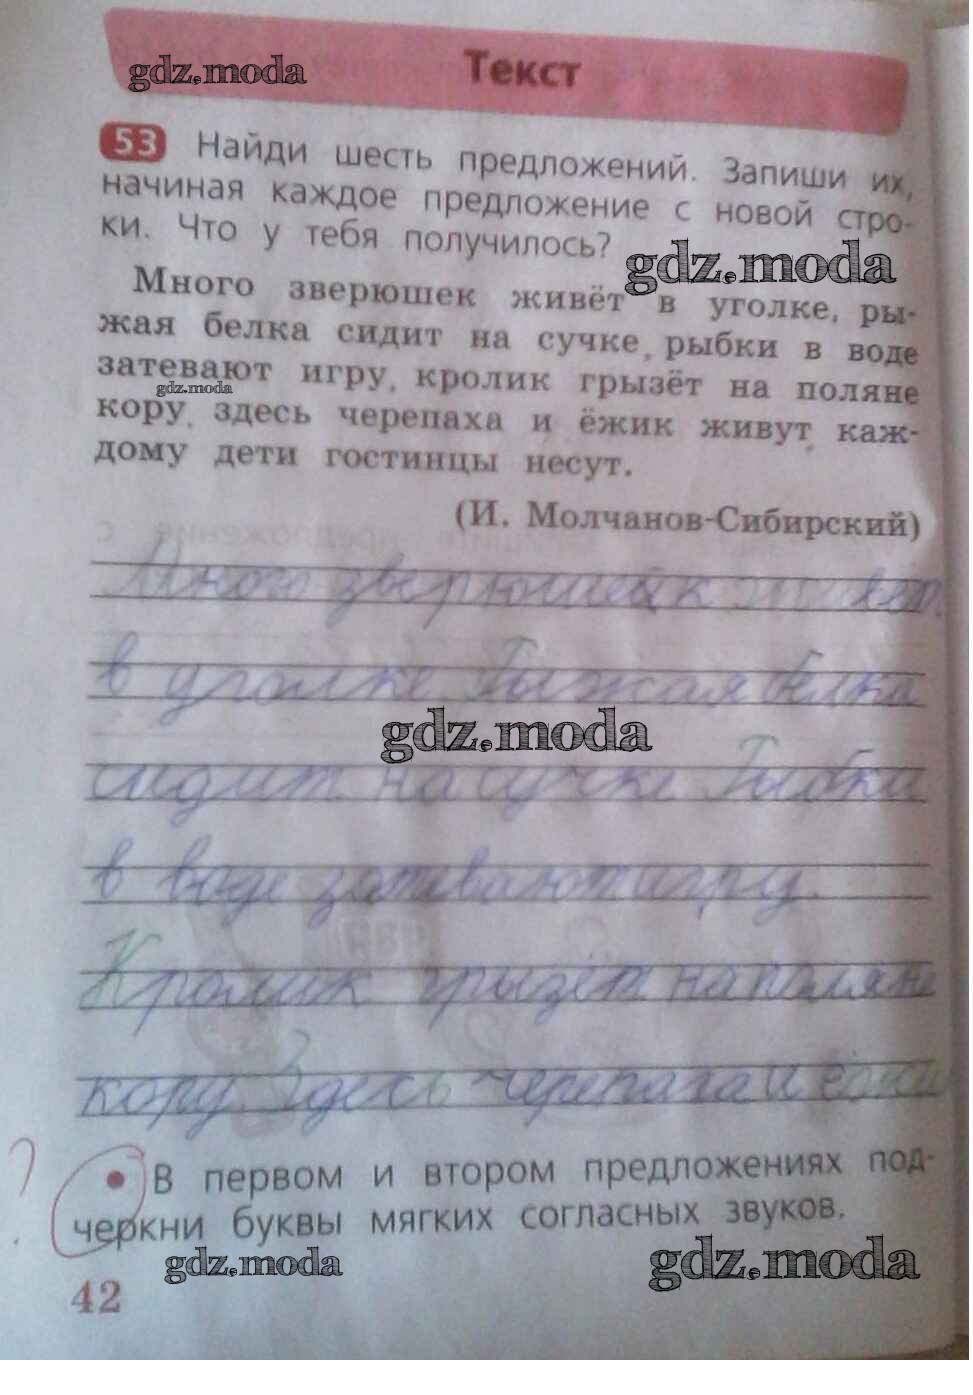 gdz.moda
Текст
53 Найди шесть предложений. Запиши их,
начиная каждое предложение с новой стро-
ки. Что у тебя получилось?
gdz.moda
Много зверюшек живёт в уголке, ры-
жая белка сидит на сучке, рыбки в воде
затевают игру, кролик грызёт на поляне
gdz.moda
кору, здесь черепаха и ёжик живут, каж-
дому дети гостинцы несут.
(И. Молчанов-Сибирский)
Много зверюшек живёт
в уголке Рыжая белка
gdz.moda
сидит на сучке Рыбки
в воде затевают игру.
Кролик грызёт на поляне
кору. Здесь черепаха и ёжик
? • В первом и втором предложениях под-
черкни буквы мягких согласных звуков.
gdz.moda
gdz.moda
42